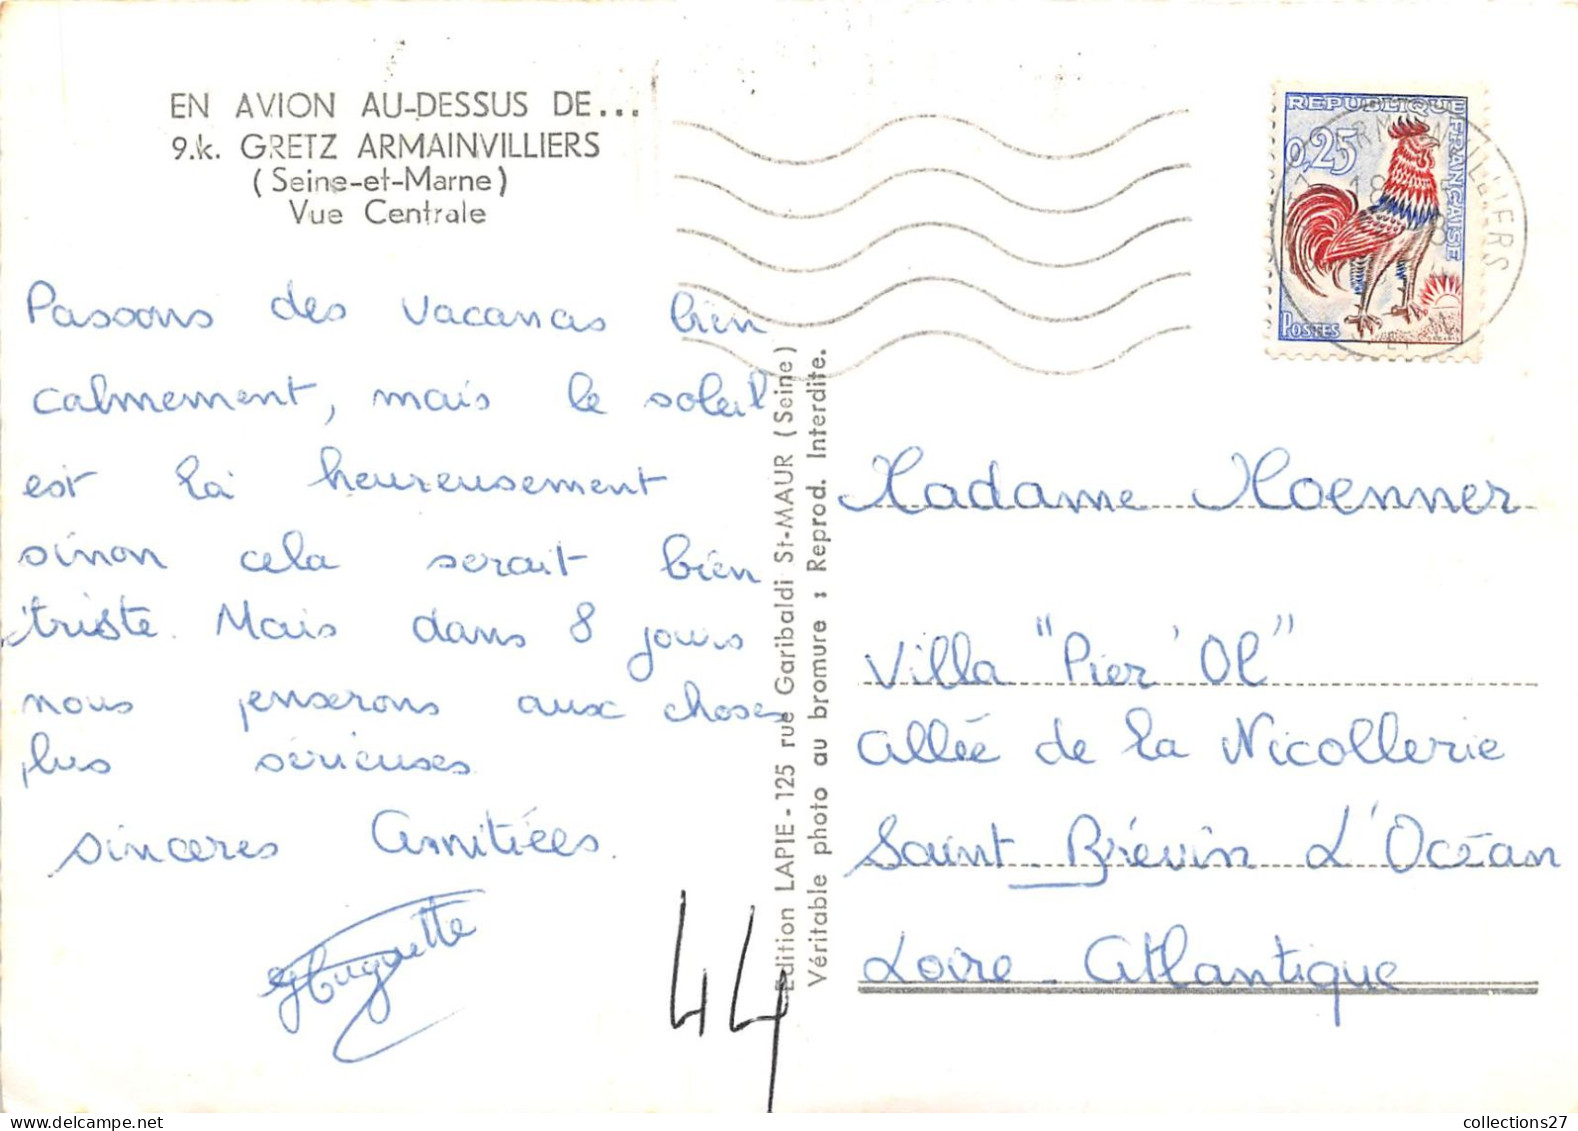 EN AVION AU-DESSUS DE...
9.k. GRETZ ARMAINVILLIERS
(Seine-et-Marne)
Vue Centrale
Passons des vacances bien
calmement, mais le soleil
est là heureusement
sinon cela serait bien
triste. Mais dans 8 jours
nous penserons aux choses
plus sérieuses.
sincères Amitiées.
Huguette
44
Edition LAPIE - 125 rue Garibaldi St-MAUR (Seine)
Véritable photo au bromure : Reprod. Interdite.
REPUBLIQUE FRANÇAISE
0,25
POSTES
Madame Moenner
Villa "Pier' Ol"
allée de la Nicollerie
Saint-Brévin L'Océan
Loire-Atlantique
collections27